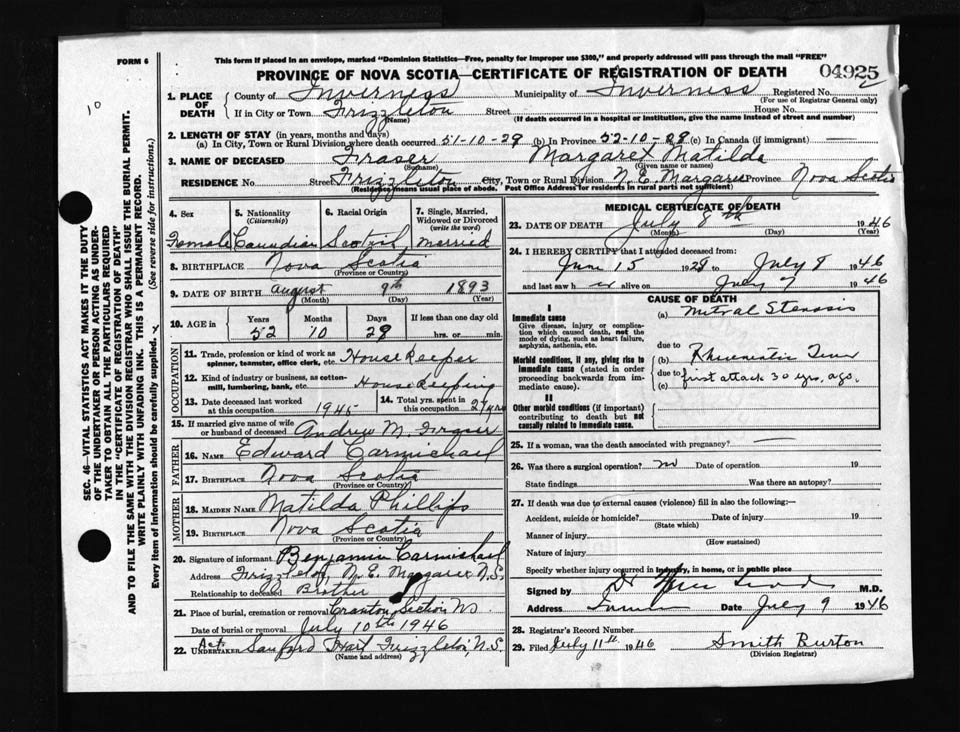 FORM 6
This form if placed in an envelope, marked "Dominion Statistics—Free, penalty for improper use $300," and properly addressed will pass through the mail "FREE"
PROVINCE OF NOVA SCOTIA—CERTIFICATE OF REGISTRATION OF DEATH
04925
10
SEC. 46—VITAL STATISTICS ACT MAKES IT THE DUTY
OF THE UNDERTAKER OR PERSON ACTING AS UNDER-
TAKER TO OBTAIN ALL THE PARTICULARS REQUIRED
IN THE "CERTIFICATE OF REGISTRATION OF DEATH"
AND TO FILE THE SAME WITH THE DIVISION REGISTRAR WHO SHALL ISSUE THE BURIAL PERMIT.
WRITE PLAINLY WITH UNFADING INK. THIS IS A PERMANENT RECORD.
Every item of information should be carefully supplied. (See reverse side for instructions.)
1. PLACE OF DEATH
County of Inverness Municipality of Inverness Registered No. 2
(For use of Registrar General only)
If in City or Town Frizzleton Street House No.
(Name) (If death occurred in a hospital or institution, give the name instead of street and number)
2. LENGTH OF STAY (in years, months and days)
(a) In City, Town or Rural Division where death occurred 51-10-29 (b) In Province 52-10-28 (c) In Canada (if immigrant)
3. NAME OF DECEASED Fraser Margaret Matilda
(Surname) (Given name or names)
RESIDENCE No. Street Frizzleton City, Town or Rural Division N.E. Margaree Province Nova Scotia
(Residence means usual place of abode. Post Office Address for residents in rural parts not sufficient)
4. Sex
5. Nationality (Citizenship)
6. Racial Origin
7. Single, Married, Widowed or Divorced (write the word)
Female Canadian Scotish Married
8. BIRTHPLACE Nova Scotia
(Province or Country)
9. DATE OF BIRTH August 9th 1893
(Month) (Day) (Year)
10. AGE in Years Months Days If less than one day old
52 10 29 hrs. or min.
OCCUPATION
11. Trade, profession or kind of work as spinner, teamster, office clerk, etc. Housekeeper
12. Kind of industry or business, as cotton-mill, lumbering, bank, etc. Housekeeping
13. Date deceased last worked at this occupation 1945
14. Total yrs. spent in this occupation 27 yrs
15. If married give name of wife or husband of deceased Andrew M. Fraser
FATHER
16. NAME Edward Carmichael
17. BIRTHPLACE Nova Scotia
(Province or Country)
MOTHER
18. MAIDEN NAME Matilda Phillips
19. BIRTHPLACE Nova Scotia
(Province or Country)
20. Signature of informant Benjamin Carmichael
Address Frizzleton, N.E. Margaree N.S.
Relationship to deceased Brother
21. Place of burial, cremation or removal Cranton Section N.S.
Date of burial or removal July 10th 1946
22. Act UNDERTAKER Sanford Hart Frizzleton, N.S.
(Name and address)
MEDICAL CERTIFICATE OF DEATH
23. DATE OF DEATH July 8th 1946
(Month) (Day) (Year)
24. I HEREBY CERTIFY that I attended deceased from:
June 15 1928 to July 8 1946
and last saw h er alive on July 7 1946
CAUSE OF DEATH
I
Immediate cause
Give disease, injury or complication which caused death, not the mode of dying, such as heart failure, asphyxia, asthenia, etc.
(a) Mitral Stenosis
due to
Morbid conditions, if any, giving rise to immediate cause (stated in order proceeding backwards from immediate cause).
(b) Rheumatic Fever
due to
(c) first attack 30 yrs. ago.
II
Other morbid conditions (if important) contributing to death but not causally related to immediate cause.
25. If a woman, was the death associated with pregnancy? —
26. Was there a surgical operation? no Date of operation 19
State findings Was there an autopsy?
27. If death was due to external causes (violence) fill in also the following:—
Accident, suicide or homicide? Date of injury 19
(State which)
Manner of injury
(How sustained)
Nature of injury
Specify whether injury occurred in industry, in home, or in public place
Signed by M.D.
Address Date July 9 1946
28. Registrar's Record Number
29. Filed July 11th 1946 Smith Burton
(Division Registrar)